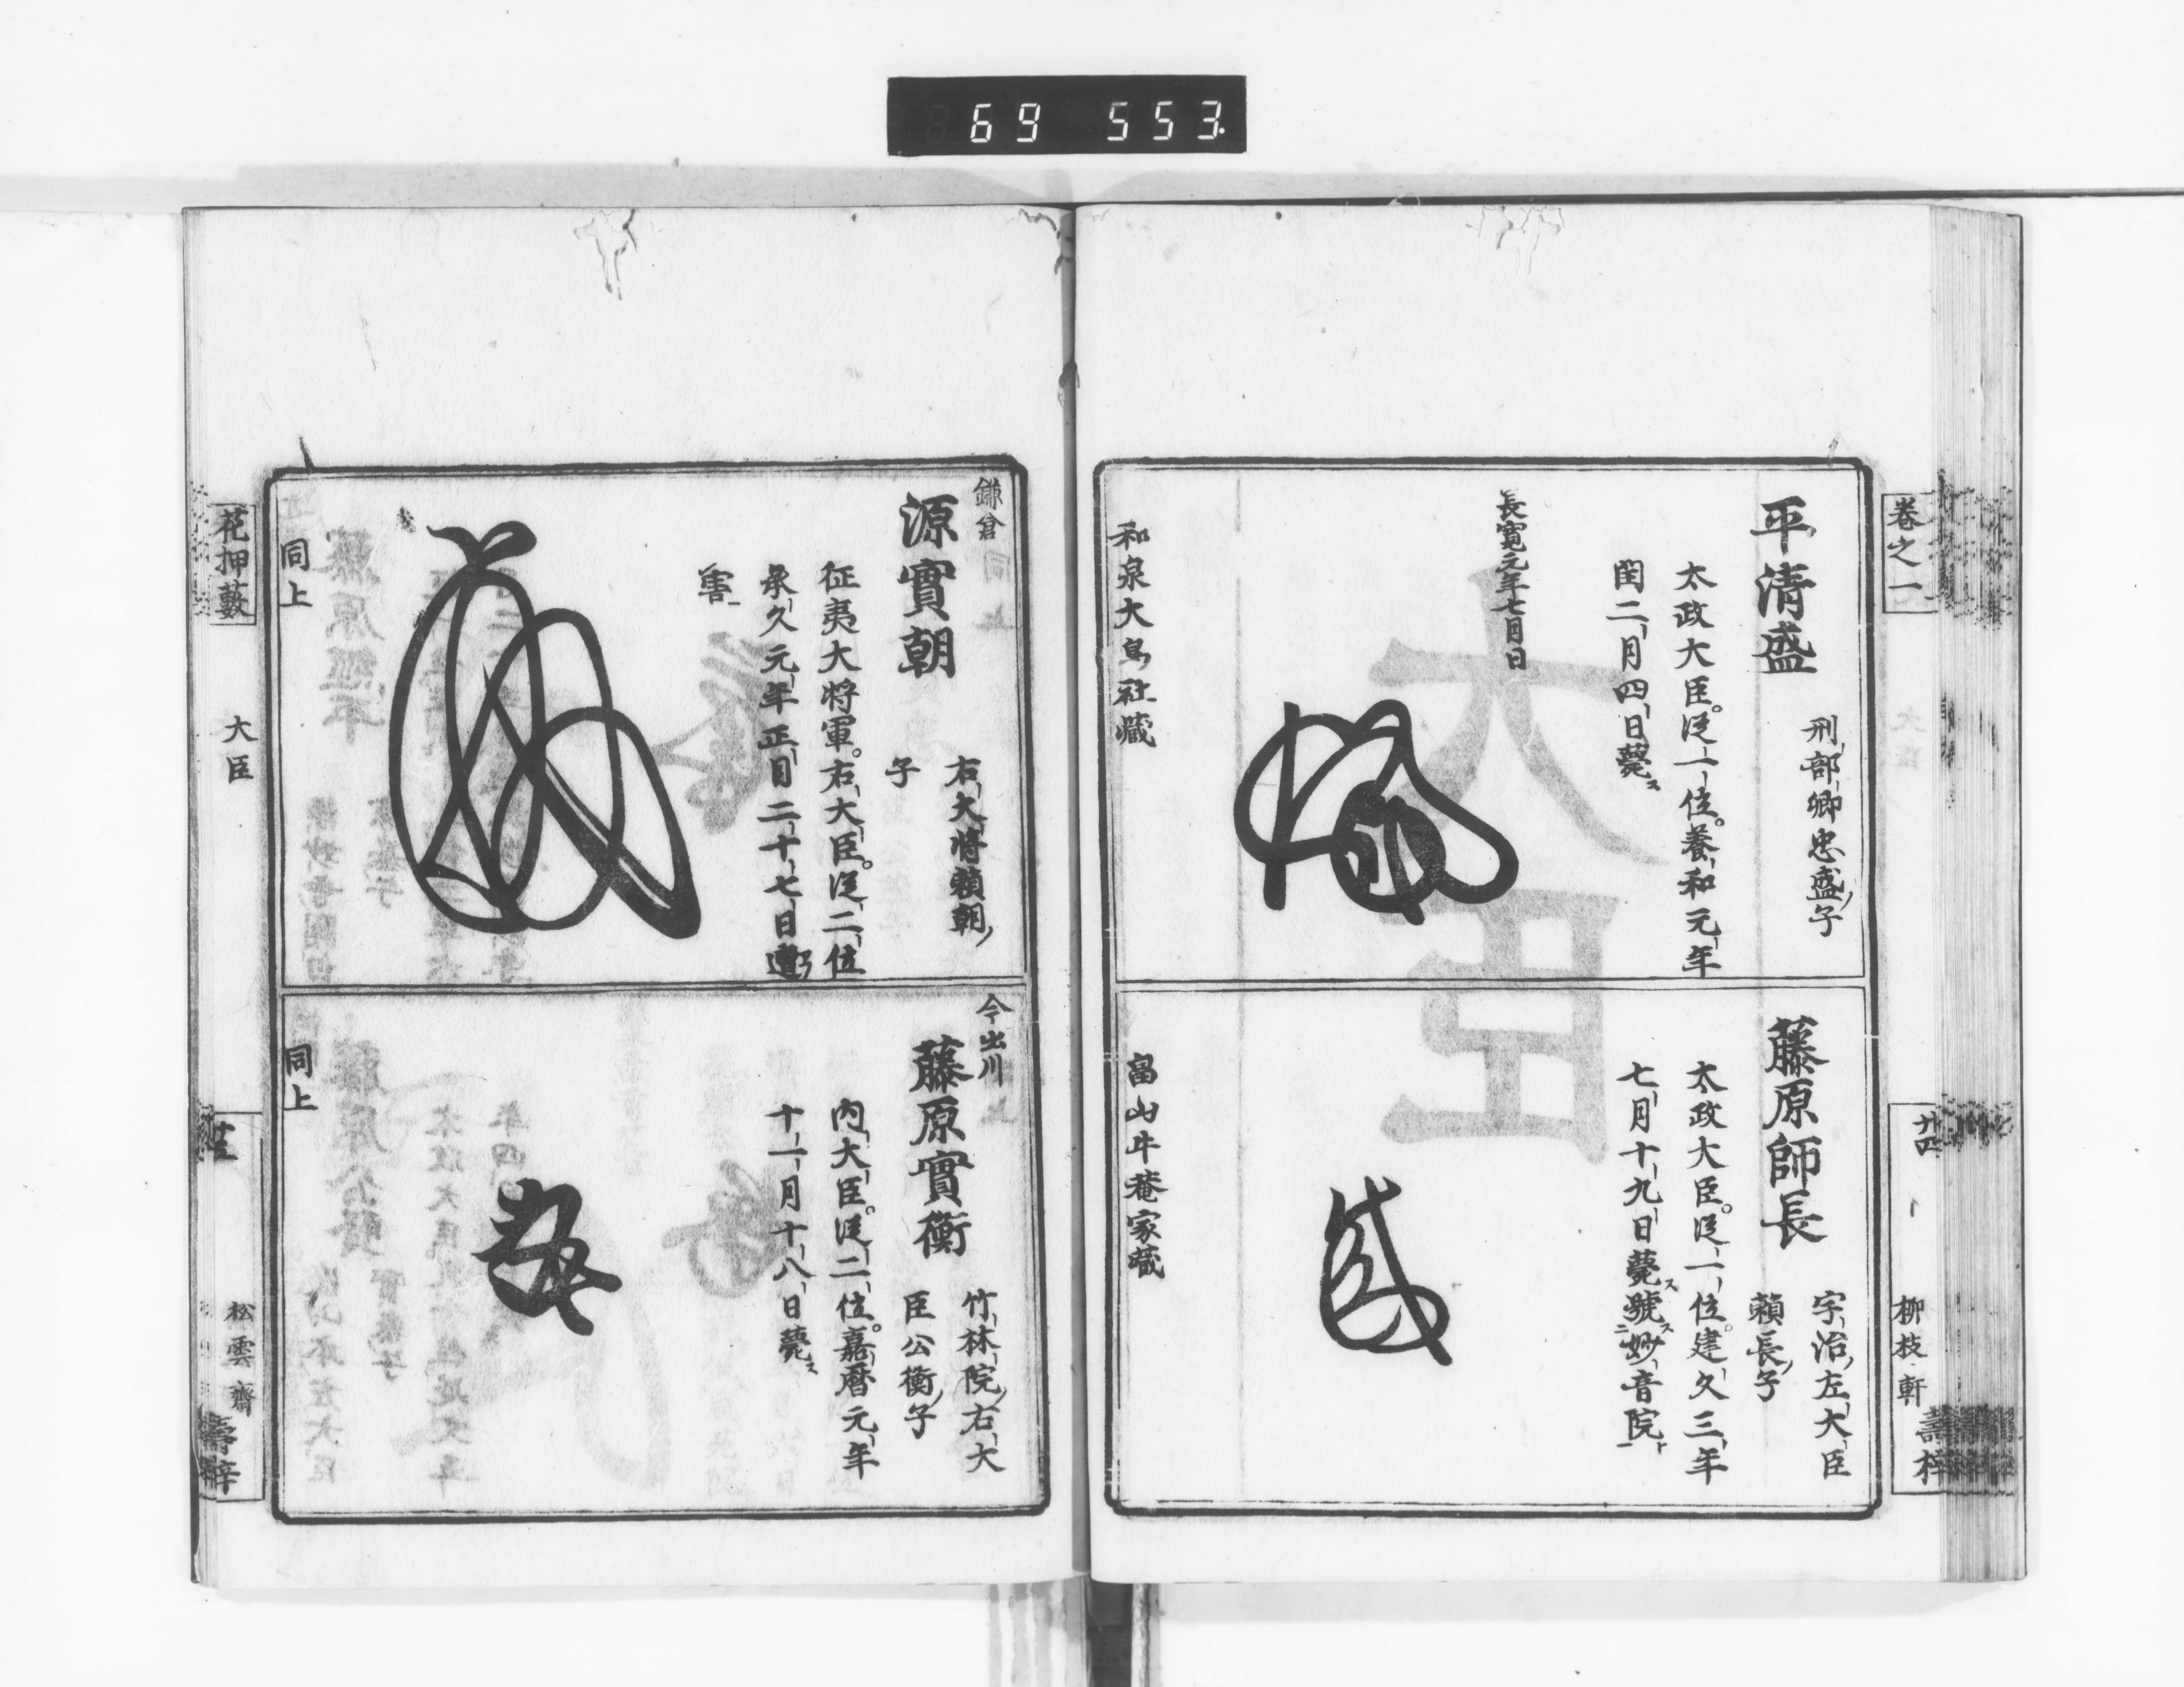 69 553.
卷之一
廿四
柳枝軒
壽梓
平清盛
刑部卿忠盛ノ子
太政大臣。從一位。養和元年
閏二月四日薨ス
長寛元年七月日
和泉大鳥社藏
藤原師長
宇治ノ左大臣
賴長ノ子
太政大臣。從一位。建久三年
七月十九日薨ス號ス妙音院ト
畠山牛菴家藏
鎌倉
源實朝
右大將賴朝ノ
子
征夷大將軍。右大臣。從二位
承久元年正月二十七日遭
害
同上
今出川
藤原實衡
竹林院ノ右大
臣公衡ノ子
内大臣。從二位。嘉暦元年
十一月十八日薨ス
同上
花押藪
大臣
松雲齋
壽梓